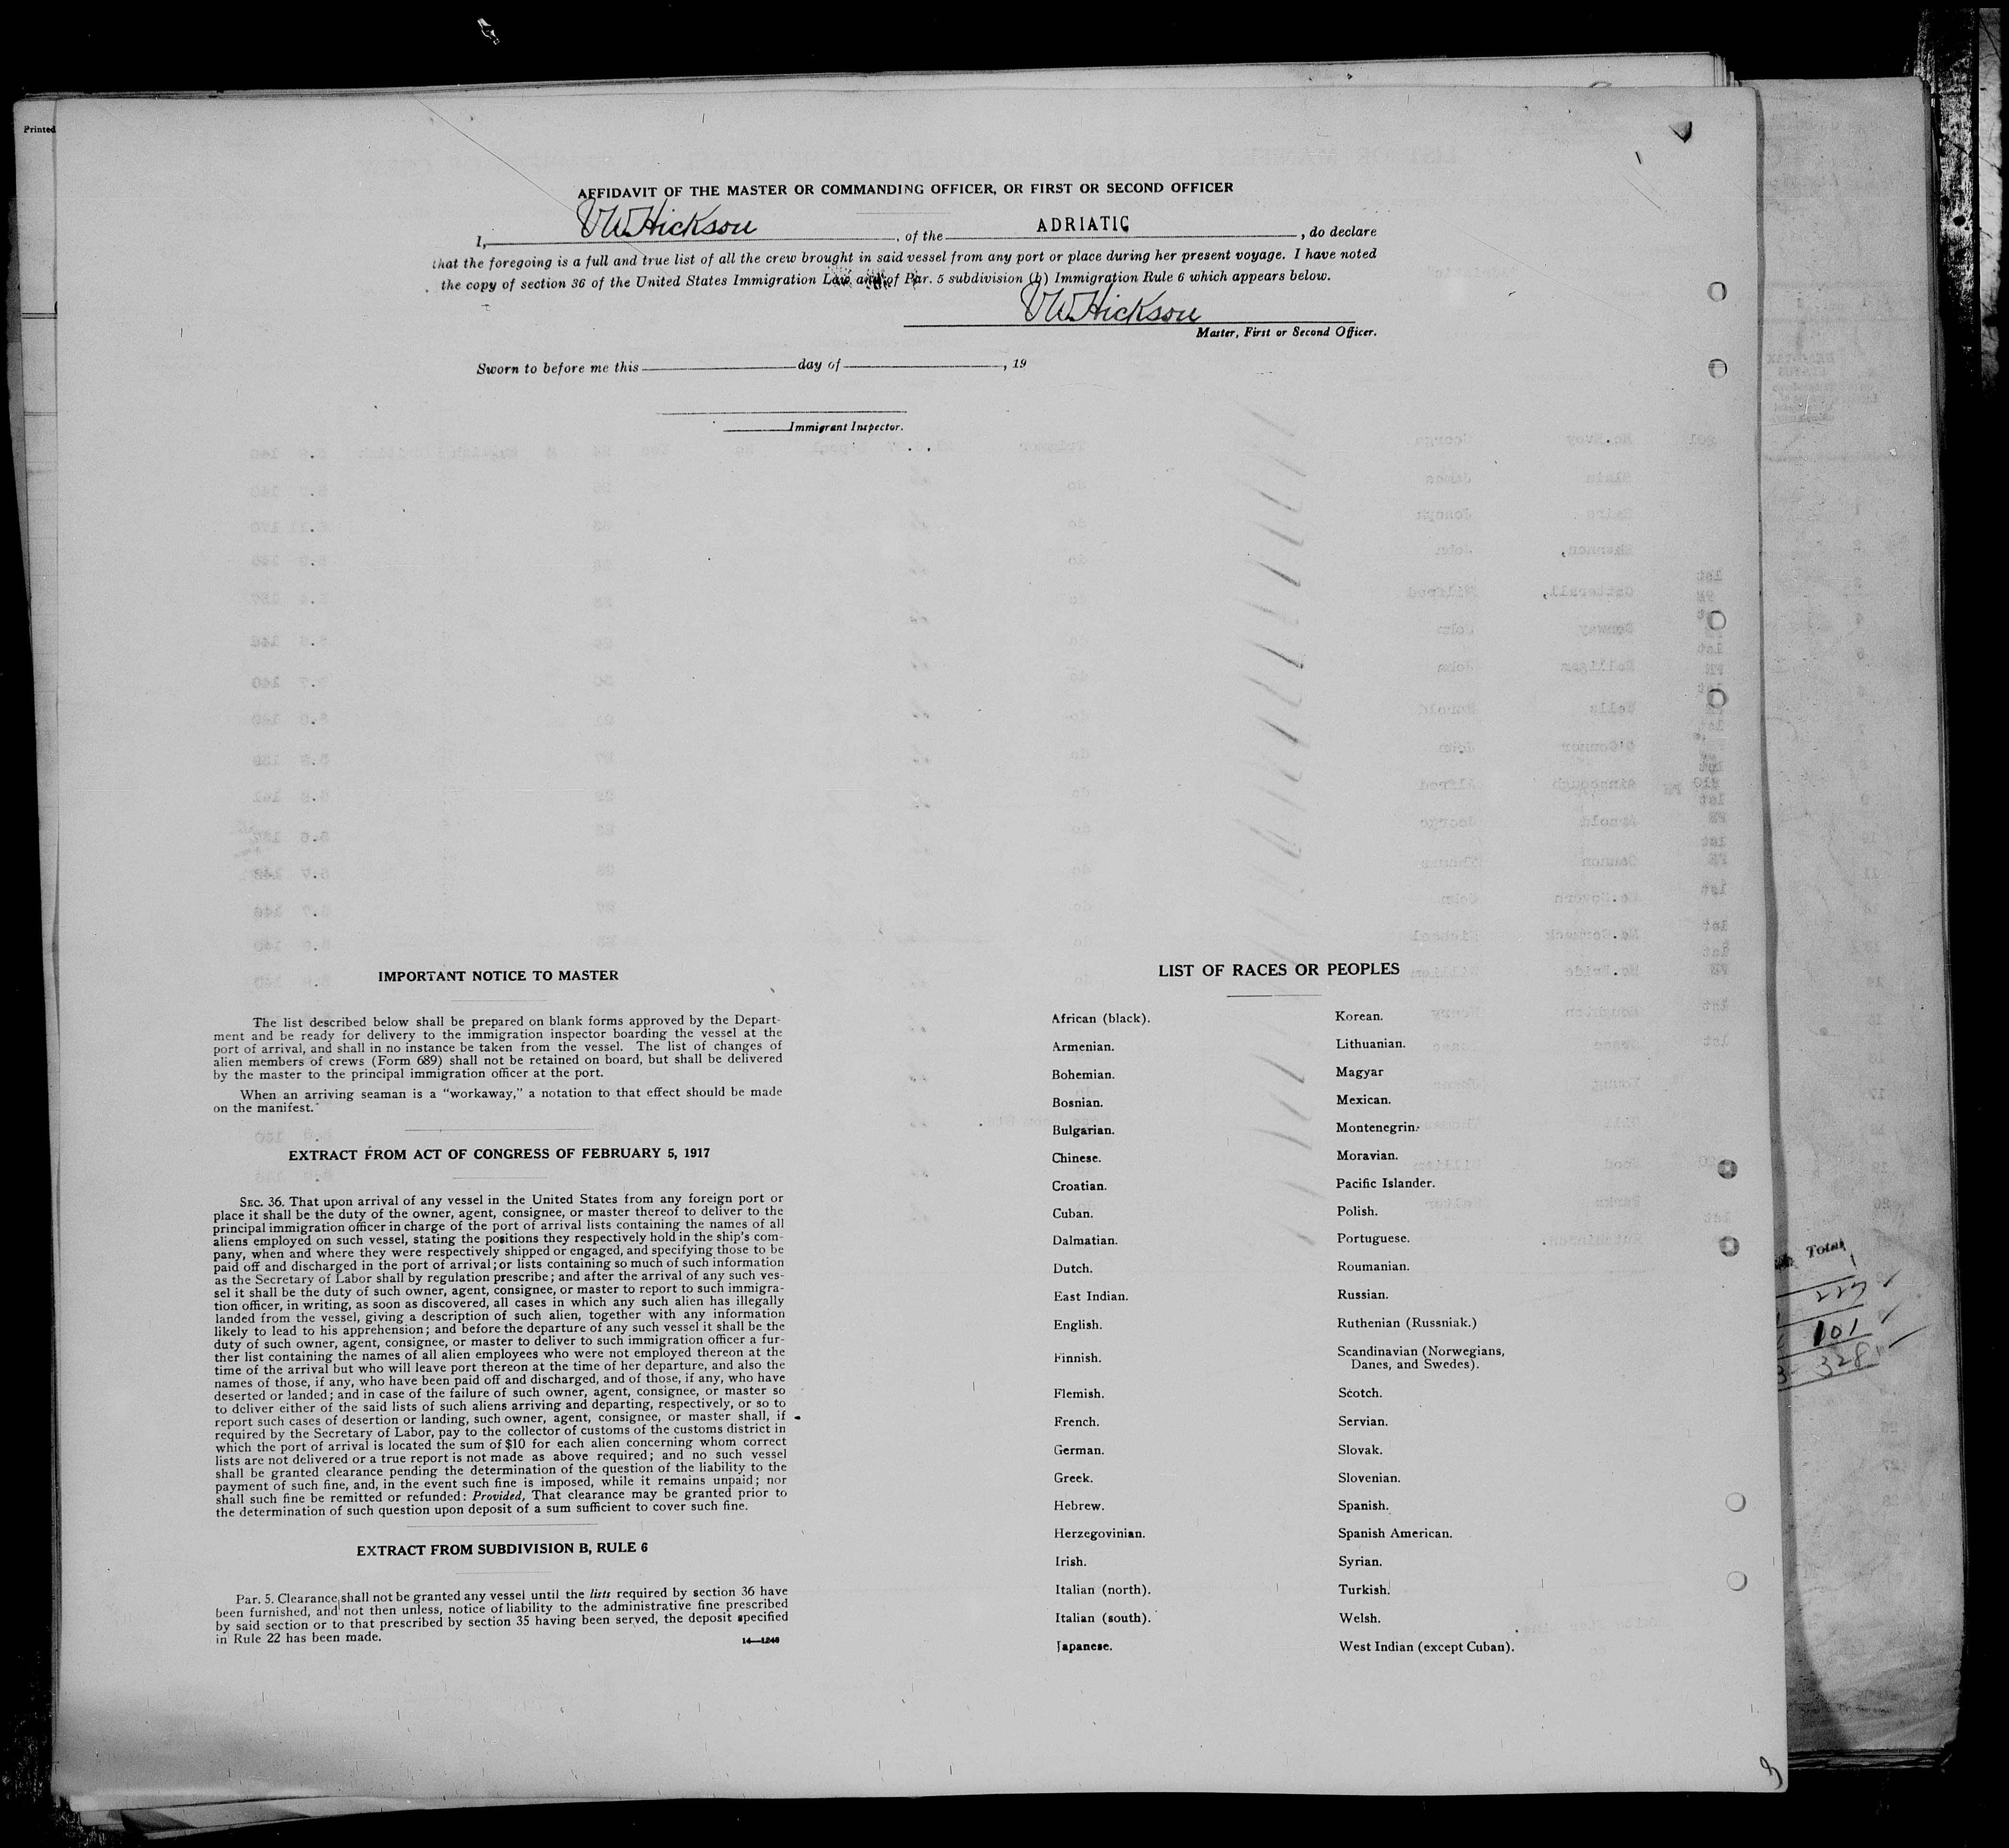 Printed
AFFIDAVIT OF THE MASTER OR COMMANDING OFFICER, OR FIRST OR SECOND OFFICER
I, VW Hickson, of the ADRIATIC, do declare
that the foregoing is a full and true list of all the crew brought in said vessel from any port or place during her present voyage. I have noted
the copy of section 36 of the United States Immigration Law and of Par. 5 subdivision (b) Immigration Rule 6 which appears below.
VW Hickson
Master, First or Second Officer.
Sworn to before me this day of , 19
Immigrant Inspector.
IMPORTANT NOTICE TO MASTER
The list described below shall be prepared on blank forms approved by the Depart-
ment and be ready for delivery to the immigration inspector boarding the vessel at the
port of arrival, and shall in no instance be taken from the vessel. The list of changes of
alien members of crews (Form 689) shall not be retained on board, but shall be delivered
by the master to the principal immigration officer at the port.
When an arriving seaman is a "workaway," a notation to that effect should be made
on the manifest.
EXTRACT FROM ACT OF CONGRESS OF FEBRUARY 5, 1917
SEC. 36. That upon arrival of any vessel in the United States from any foreign port or
place it shall be the duty of the owner, agent, consignee, or master thereof to deliver to the
principal immigration officer in charge of the port of arrival lists containing the names of all
aliens employed on such vessel, stating the positions they respectively hold in the ship's com-
pany, when and where they were respectively shipped or engaged, and specifying those to be
paid off and discharged in the port of arrival; or lists containing so much of such information
as the Secretary of Labor shall by regulation prescribe; and after the arrival of any such ves-
sel it shall be the duty of such owner, agent, consignee, or master to report to such immigra-
tion officer, in writing, as soon as discovered, all cases in which any such alien has illegally
landed from the vessel, giving a description of such alien, together with any information
likely to lead to his apprehension; and before the departure of any such vessel it shall be the
duty of such owner, agent, consignee, or master to deliver to such immigration officer a fur-
ther list containing the names of all alien employees who were not employed thereon at the
time of the arrival but who will leave port thereon at the time of her departure, and also the
names of those, if any, who have been paid off and discharged, and of those, if any, who have
deserted or landed; and in case of the failure of such owner, agent, consignee, or master so
to deliver either of the said lists of such aliens arriving and departing, respectively, or so to
report such cases of desertion or landing, such owner, agent, consignee, or master shall, if
required by the Secretary of Labor, pay to the collector of customs of the customs district in
which the port of arrival is located the sum of $10 for each alien concerning whom correct
lists are not delivered or a true report is not made as above required; and no such vessel
shall be granted clearance pending the determination of the question of the liability to the
payment of such fine, and, in the event such fine is imposed, while it remains unpaid; nor
shall such fine be remitted or refunded: Provided, That clearance may be granted prior to
the determination of such question upon deposit of a sum sufficient to cover such fine.
EXTRACT FROM SUBDIVISION B, RULE 6
Par. 5. Clearance shall not be granted any vessel until the lists required by section 36 have
been furnished, and not then unless, notice of liability to the administrative fine prescribed
by said section or to that prescribed by section 35 having been served, the deposit specified
in Rule 22 has been made.
14—1240
LIST OF RACES OR PEOPLES
African (black).
Armenian.
Bohemian.
Bosnian.
Bulgarian.
Chinese.
Croatian.
Cuban.
Dalmatian.
Dutch.
East Indian.
English.
Finnish.
Flemish.
French.
German.
Greek.
Hebrew.
Herzegovinian.
Irish.
Italian (north).
Italian (south).
Japanese.
Korean.
Lithuanian.
Magyar
Mexican.
Montenegrin.
Moravian.
Pacific Islander.
Polish.
Portuguese.
Roumanian.
Russian.
Ruthenian (Russniak.)
Scandinavian (Norwegians,
Danes, and Swedes).
Scotch.
Servian.
Slovak.
Slovenian.
Spanish.
Spanish American.
Syrian.
Turkish.
Welsh.
West Indian (except Cuban).
Total
227
101
328